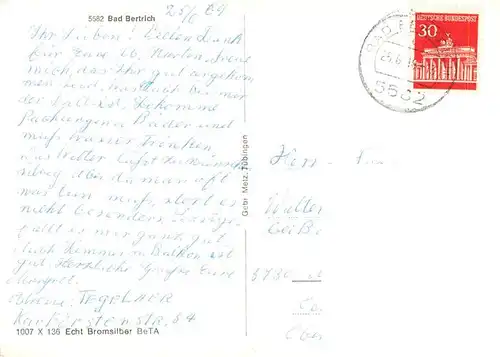 5582 Bad Bertrich
25/6 69
Ihr Lieben! Vielen Dank
für Eure lb. Karten. Freue
mich, das Ihr gut angekom
men seid, was auch bei mir
der Fall ist. Bekomme
Packungen Bäder und
muß Wasser Trinken
das Wetter läßt zu wünschen
übrig aber da man oft
warten muß, stört es
nicht besonders. Sonst ge
fällt es mir ganz gut
auch Zimmer u Balkon ist
gut. Herzliche Grüße Eure
Margret.
TEGELHER
Kurfürstenstr. 84
1007 X 136 Echt Bromsilber BeTA
Gebr Metz, Tübingen
DEUTSCHE BUNDESPOST
30
BAD BE
25.6.
5582
Herr
Walter
bei B